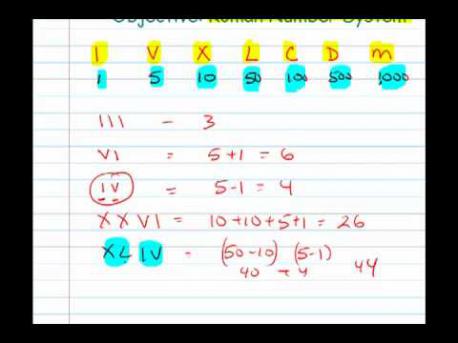 Objective: Roman Number System
I V X L C D m
1 5 10 50 100 500 1000
III - 3
VI = 5+1 = 6
IV = 5-1 = 4
XXVI = 10+10+5+1 = 26
XLIV - (50-10) (5-1) 44
40 + 4